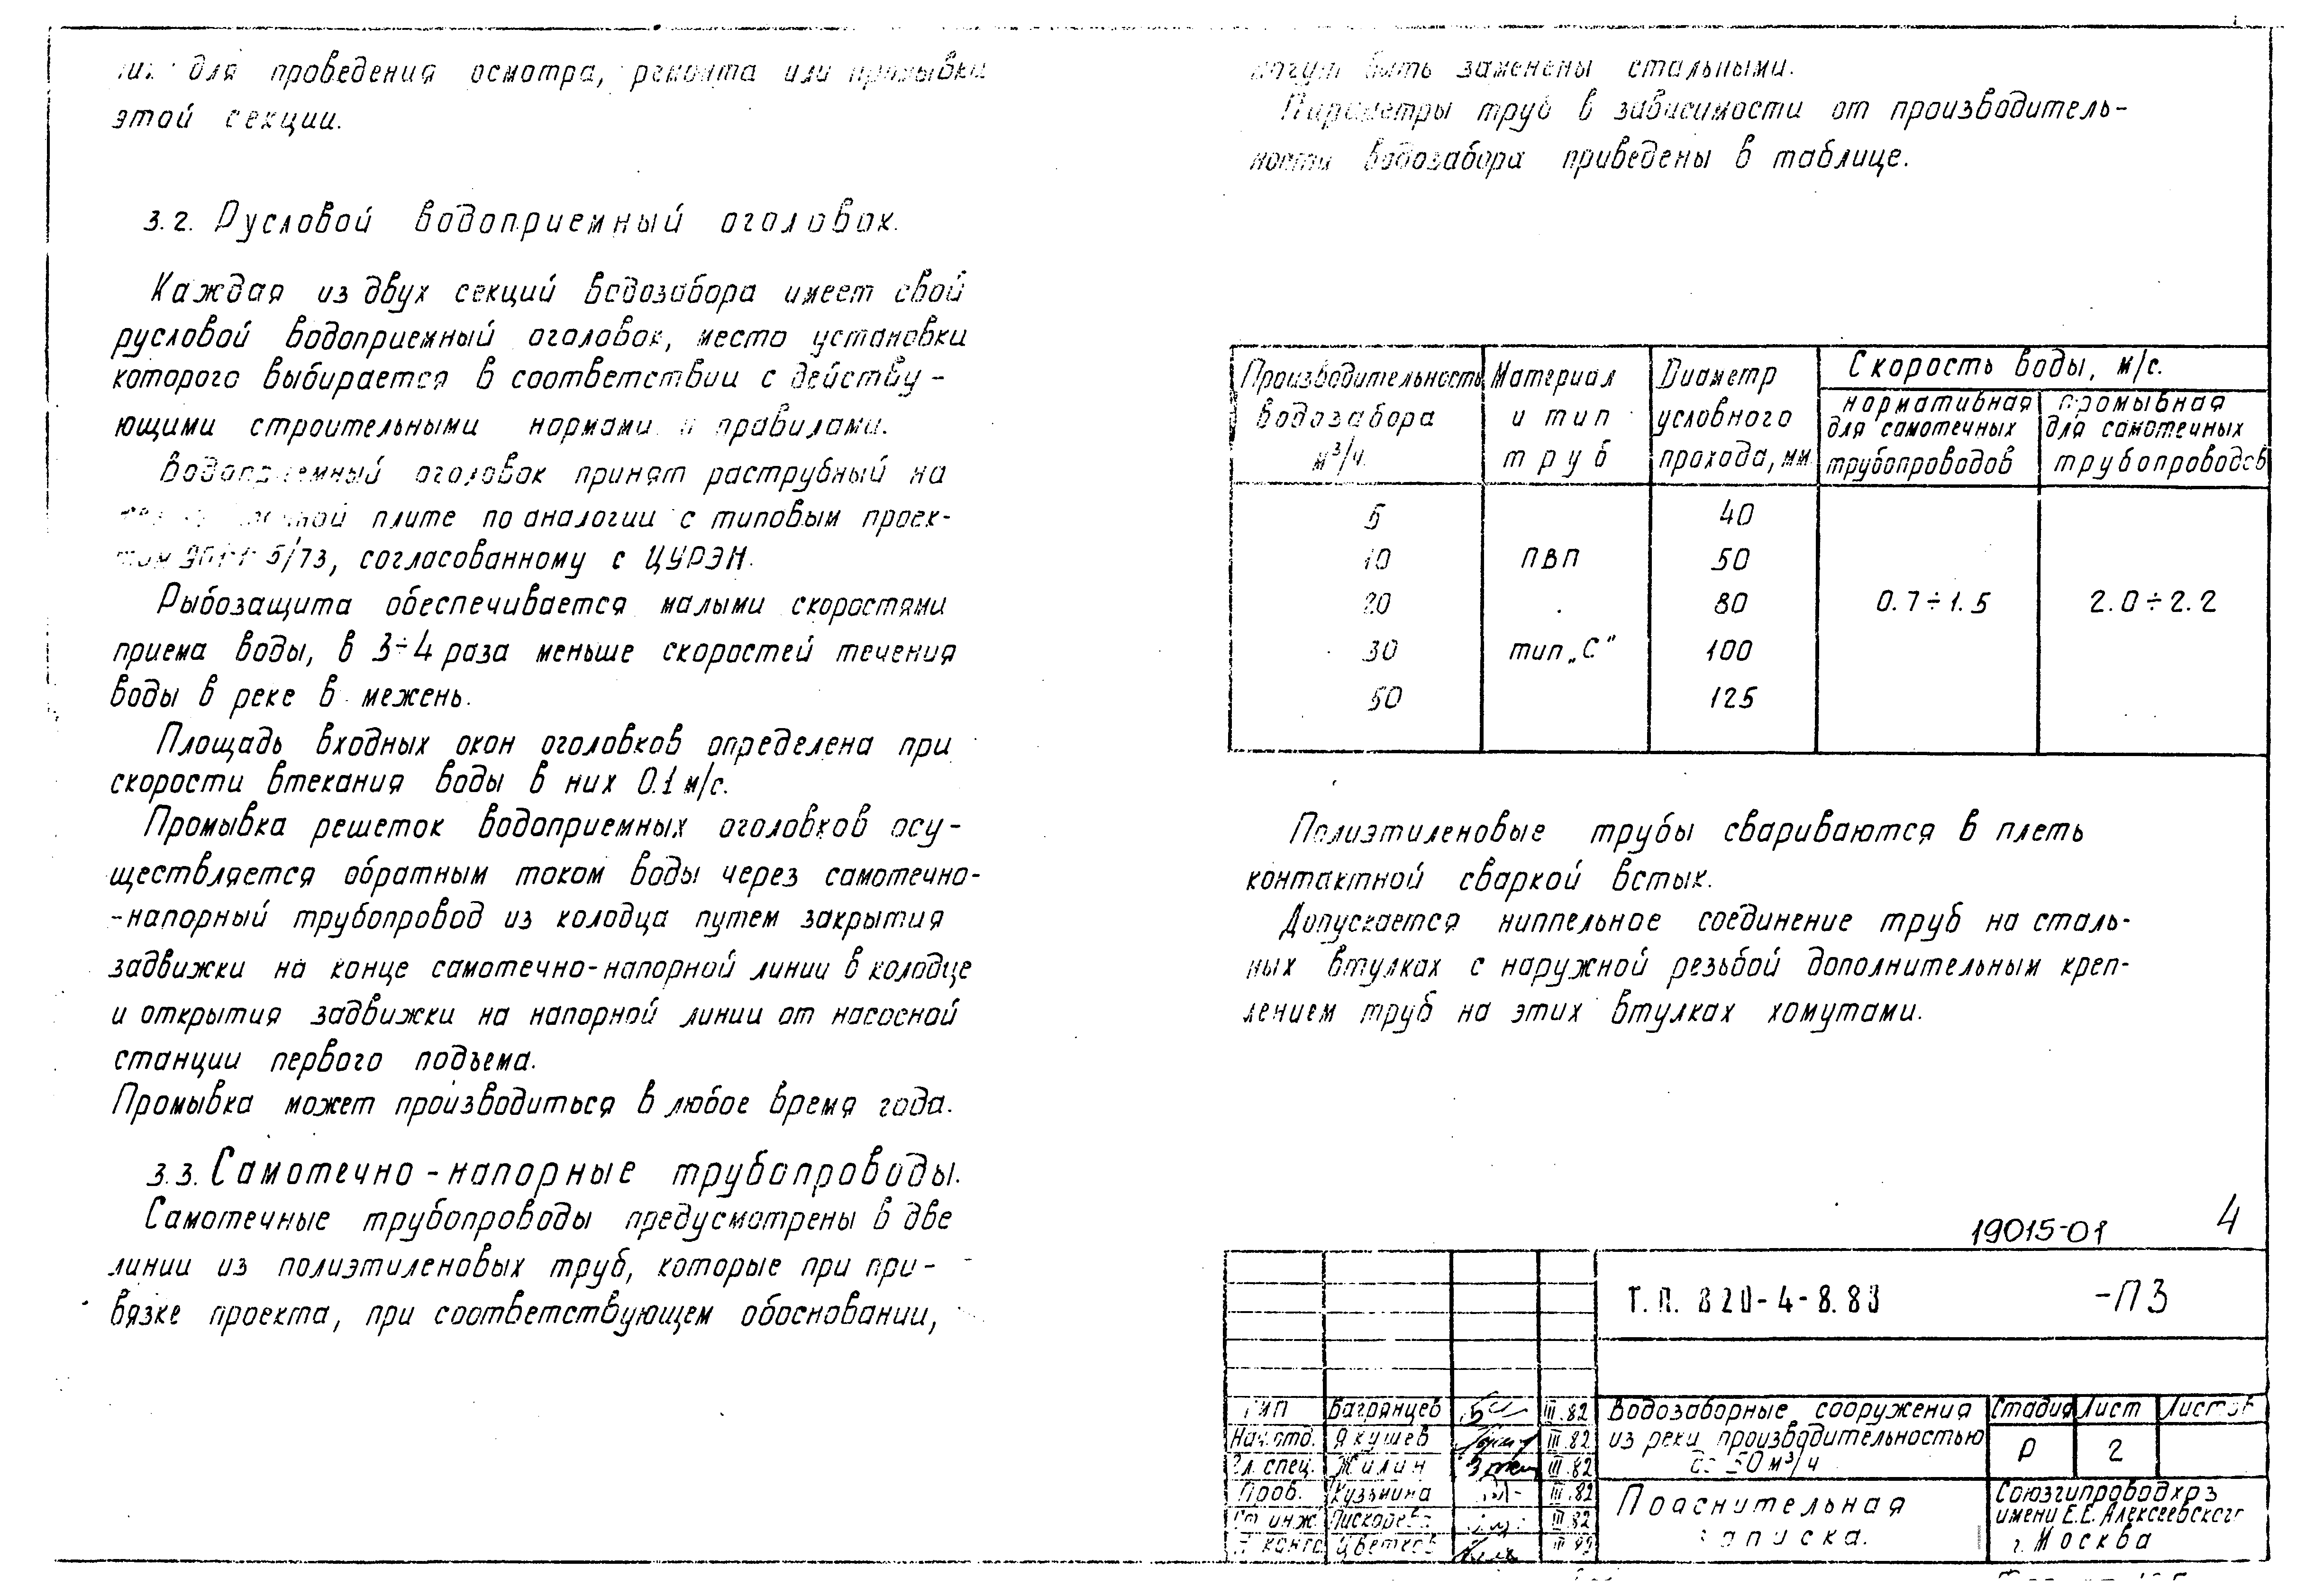 для проведения осмотра, ремонта или промывки
этой секции.
3.2. Русловой водоприемный оголовок.
Каждая из двух секций водозабора имеет свой
русловой водоприемный оголовок, место установки
которого выбирается в соответствии с действу-
ющими строительными нормами и правилами.
Водоприемный оголовок принят раструбный на
плите по аналогии с типовым проек-
том согласованному с ЦУРЭН.
Рыбозащита обеспечивается малыми скоростями
приема воды, в 3÷4 раза меньше скоростей течения
воды в реке в межень.
Площадь входных окон оголовков определена при
скорости втекания воды в них 0.1 м/с.
Промывка решеток водоприемных оголовков осу-
ществляется обратным током воды через самотечно-
-напорный трубопровод из колодца путем закрытия
задвижки на конце самотечно-напорной линии в колодце
и открытия задвижки на напорной линии от насосной
станции первого подъема.
Промывка может производиться в любое время года.
3.3. Самотечно-напорные трубопроводы.
Самотечные трубопроводы предусмотрены в две
линии из полиэтиленовых труб, которые при при-
вязке проекта, при соответствующем обосновании,
могут быть заменены стальными.
Параметры труб в зависимости от производитель-
ности водозабора приведены в таблице.
Производительность водозабора м³/ч. Материал и тип труб Диаметр условного прохода, мм Скорость воды, м/с.
нормативная для самотечных трубопроводов промывная для самотечных трубопроводов
5 40
10 ПВП 50
20 80 0.7÷1.5 2.0÷2.2
30 тип „С" 100
50 125
Полиэтиленовые трубы свариваются в плеть
контактной сваркой встык.
Допускается ниппельное соединение труб на сталь-
ных втулках с наружной резьбой дополнительным креп-
лением труб на этих втулках хомутами.
19015-01 4
Т.П. 820-4-8.83 -ПЗ
ГИП Багрянцев III.82
Нач.отд. Якушев III.82
Гл. спец. Жилин III.82
Пров. Кузьмина III.82
Ст. инж. Пискарева III.82
Н. контр Цветков III
Водозаборные сооружения
из реки производительностью
до 50 м³/ч
Стадия Лист Листов
Р 2
Пояснительная
записка.
Союзгипроводхоз
имени Е.Е. Алексеевского
г. Москва